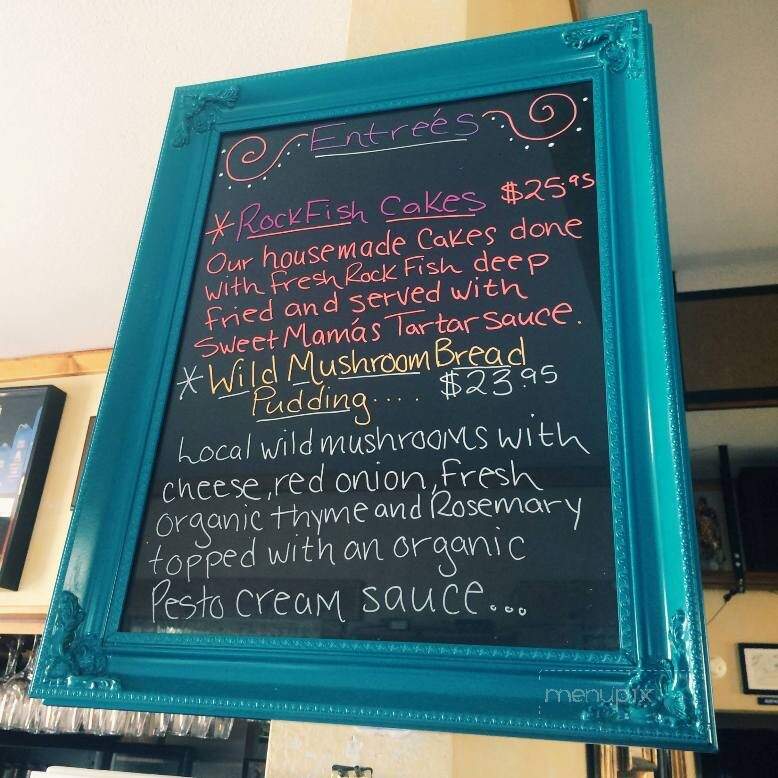 Entreés
*RockFish Cakes $25.95
Our housemade Cakes done
with fresh Rock Fish deep
fried and served with
Sweet Mamás Tartar sauce.
*Wild Mushroom Bread
Pudding.... $23.95
Local wild mushrooms with
cheese, red onion, fresh
organic thyme and Rosemary
topped with an organic
Pesto cream sauce...
menupix